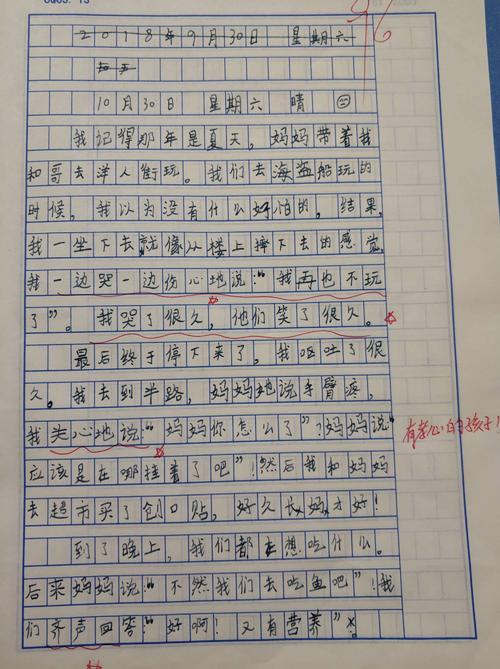 2018年9月30日 星期六
10月30日 星期六 晴
我记得那年是夏天,妈妈带着我
和哥去洋人街玩。我们去海盗船玩的
时候,我以为没有什么好怕的,结果,
我一坐下去,就像从楼上摔下去的感觉,
我一边哭一边伤心地说:“我再也不玩
了”。我哭了很久,他们笑了很久。
最后终于停下来了,我呕吐了很
久。我去到半路,妈妈她说手臂疼,
我关心地说:“妈妈你怎么了”?妈妈说“
有孝心的孩子!
应该是在哪挂着了吧”!然后我和妈妈
去超市买了创口贴,好久妈妈才好!
到了晚上,我们都在想吃什么。
后来妈妈说:“不然我们去吃鱼吧”!我
们齐声回答:“好啊!又有营养”。